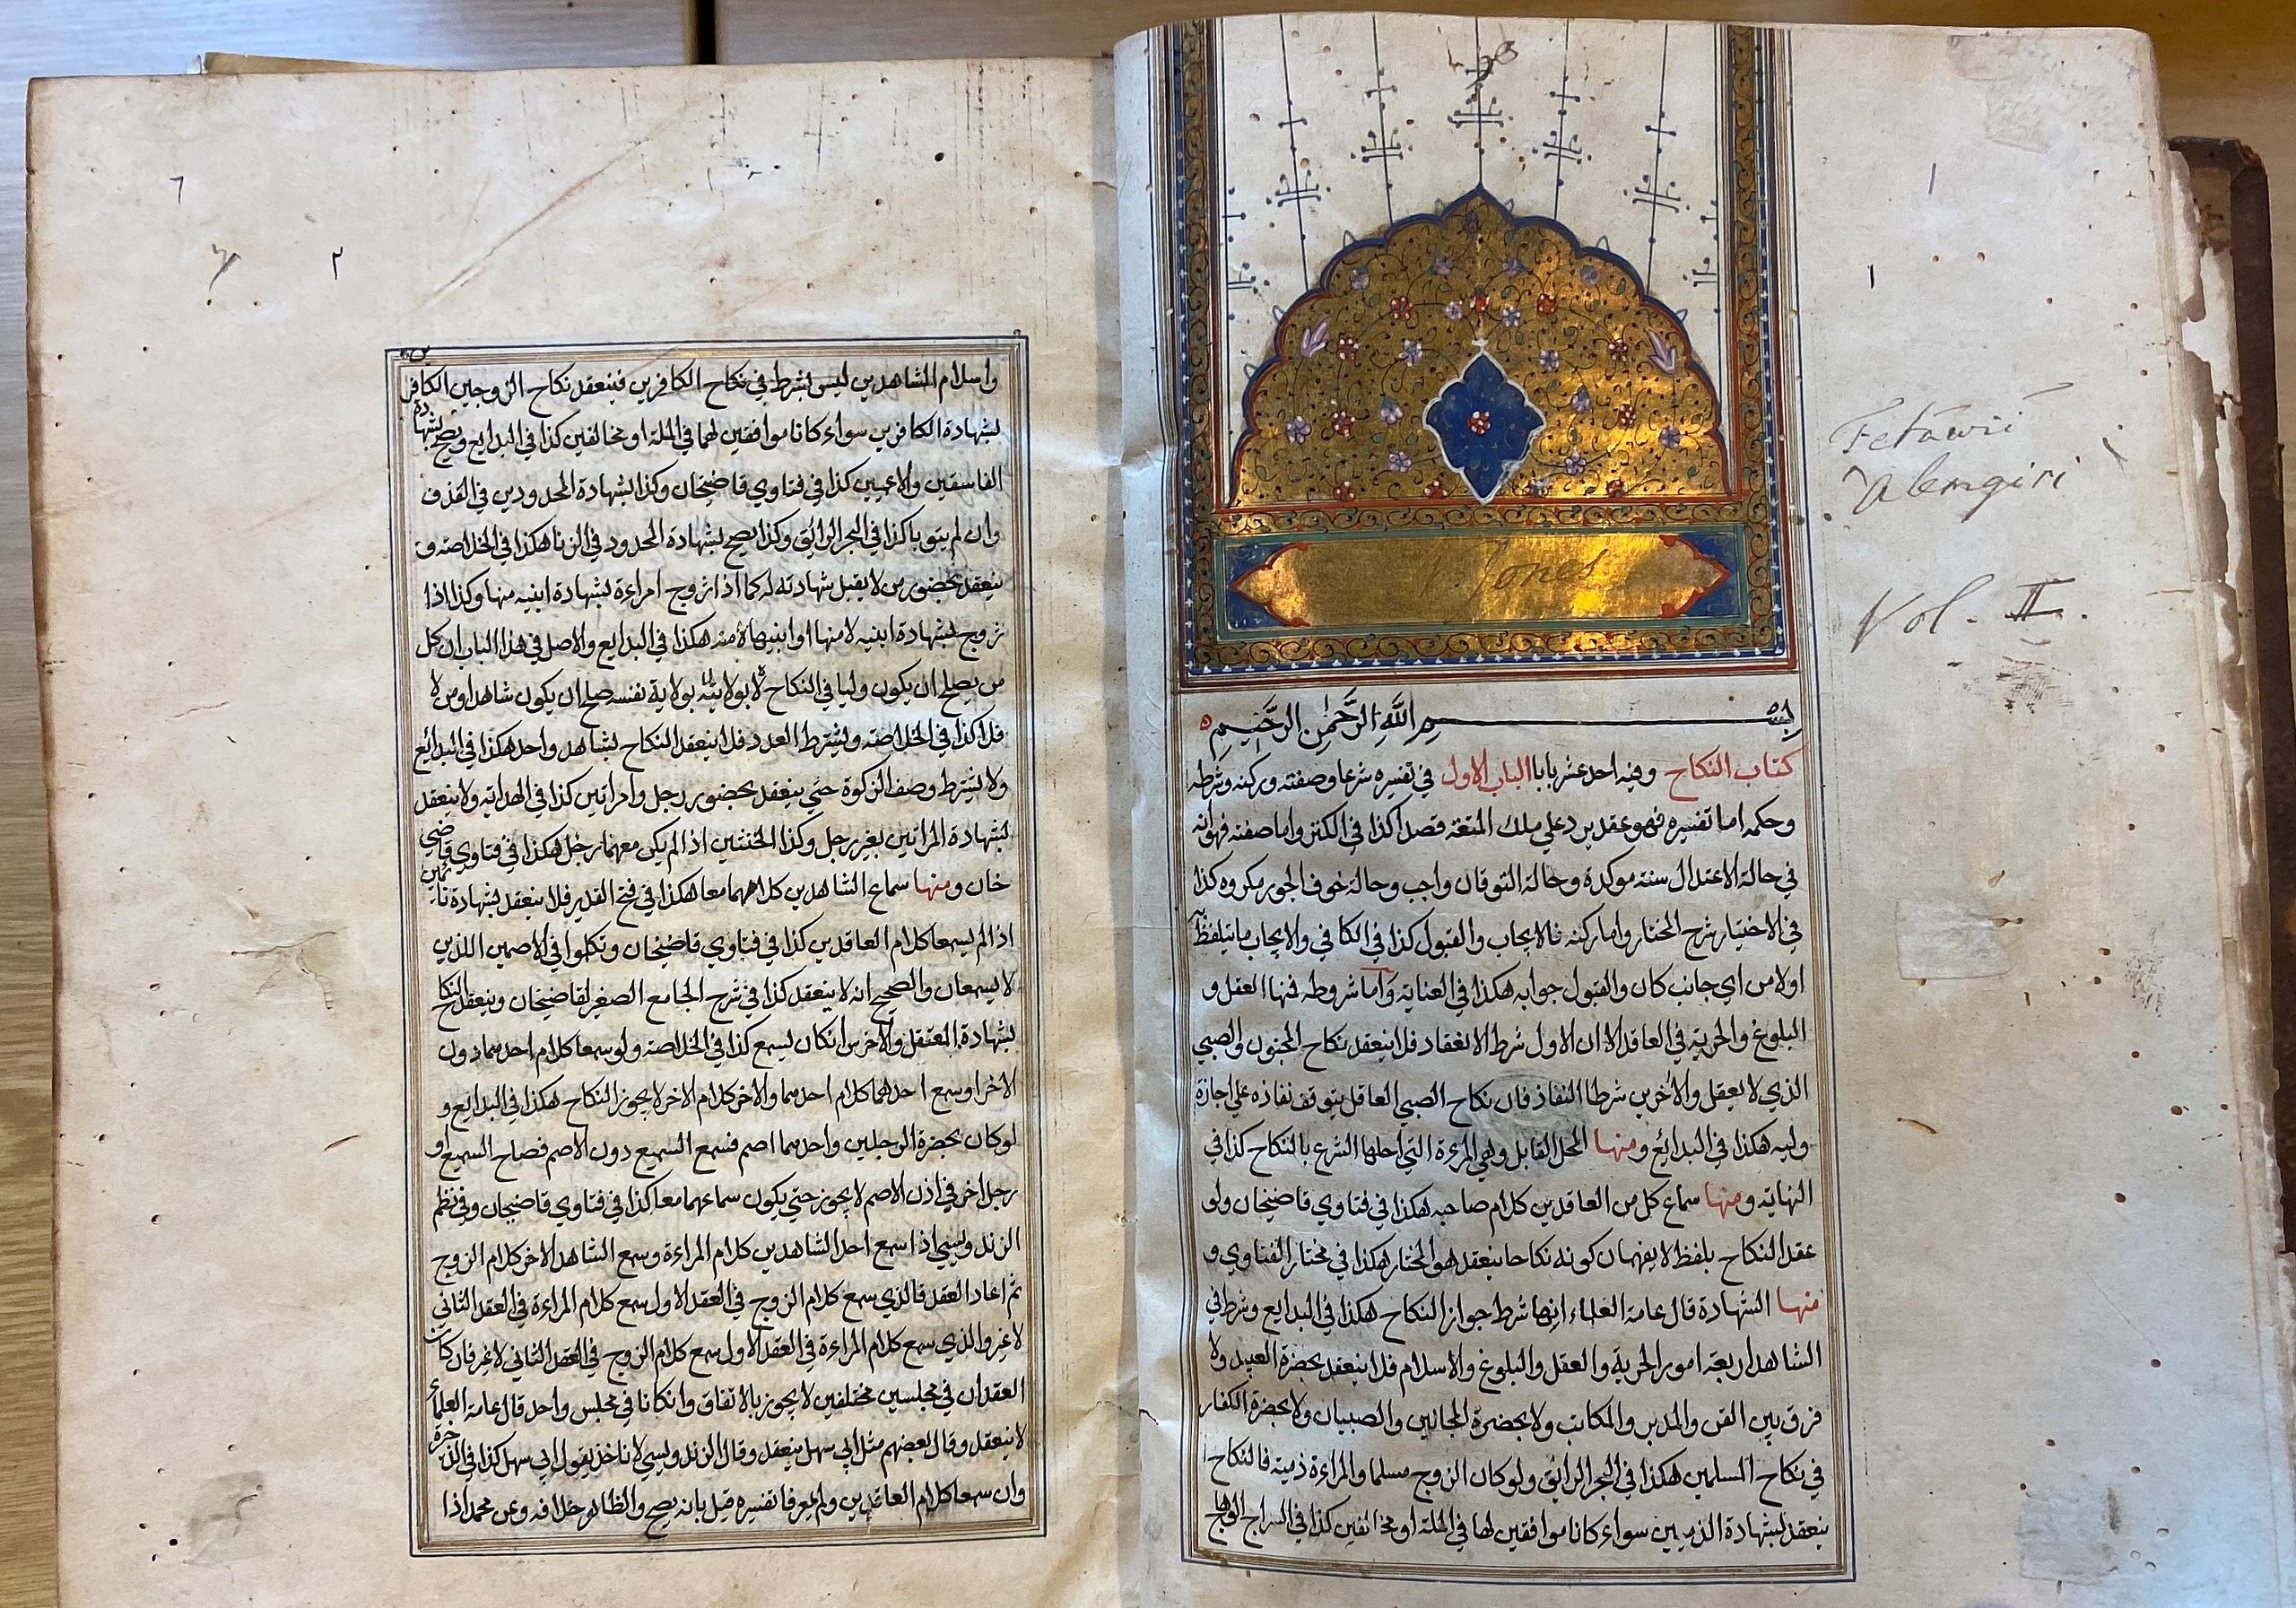 ١
Fetawii
Alemgiri
Vol. II.
Jones
بسم الله الرحمن الرحيم
كتاب النكاح وفيه احد عشر بابا الباب الاول في تفسيره شرعا وصفته وركنه وشرطه
وحكمه اما تفسيره فهو عقد يرد علي ملك المتعة قصدا كذا في الكنز واما صفته فهو انه
في حالة الاعتدال سنة موكدة وحالة التوقان واجب وحالة خوف الجور مكروه كذا
في الاختيار شرح المختار واما ركنه فالايجاب والقبول كذا في الكافي والايجاب ما يتلفظ به
اولا من اي جانب كان والقبول جوابه هكذا في العناية واما شروطه فمنها العقل و
البلوغ والحرية في العاقد الا ان الاول شرط الانعقاد فلا ينعقد نكاح المجنون والصبي
الذي لا يعقل والاخرين شرطا النفاذ فان نكاح الصبي العاقل يتوقف نفاذه علي اجازة
وليه هكذا في البدائع ومنها المحل القابل وهي المرءة التي احلها الشرع بالنكاح كذا في
النهاية ومنها سماع كل من العاقدين كلام صاحبه هكذا في فتاوي قاضيخان ولو
عقد النكاح بلفظ لا يفهمان كونه نكاحا ينعقد هو المختار هكذا في مختار الفتاوي و
منها الشهادة قال عامة العلماء انها شرط جواز النكاح هكذا في البدايع وشرط في
الشاهد اربعة امور الحرية والعقل والبلوغ والاسلام فلا ينعقد بحضرة العبيد ولا
فرق بين القن والمدبر والمكاتب ولا بحضرة المجانين والصبيان ولا بحضرة الكفار
في نكاح المسلمين هكذا في البحر الرائق ولو كان الزوج مسلما والمراءة ذمية فالنكاح
ينعقد بشهادة الذميين سواء كانا موافقين لها في الملة او مخالفين كذا في السراج الوهاج
٢
واسلام الشاهدين ليس بشرط في نكاح الكافرين فينعقد نكاح الزوجين الكافرين
بشهادة الكافرين سواء كانا موافقين لهما في الملة او مخالفين كذا في البدايع ويصح بشهادة
الفاسقين والاعميين كذا في فتاوي قاضيخان وكذا بشهادة المحدودين في القذف
وان لم يتوبا كذا في البحر الرائق وكذا يصح بشهادة المحدود في الزنا هكذا في الخلاصة و
ينعقد بحضور من لا يقبل شهادته له كما اذا تزوج امراءة بشهادة ابنيه منها وكذا اذا
تزوج بشهادة ابنيه لا منها او ابنيها لا منه هكذا في البدايع والاصل في هذا الباب ان كل
من يصلح ان يكون وليا في النكاح بولاية نفسه صلح ان يكون شاهدا ومن لا
فلا كذا في الخلاصة ويشترط العدد فلا ينعقد النكاح بشاهد واحد هكذا في البدائع
ولا يشترط وصف الذكورة حتي ينعقد بحضور رجل وامراتين كذا في الهداية ولا ينعقد
بشهادة المراتين بغير رجل وكذا الخنثيين اذا لم يكن معهما رجل هكذا في فتاوي قاضي
خان ومنها سماع الشاهدين كلامهما معا هكذا في فتح القدير فلا ينعقد بشهادة نائمين
اذا لم يسمعا كلام العاقدين كذا في فتاوي قاضيخان وتكلموا في الاصمين اللذين
لا يسمعان والصحيح انه لا ينعقد كذا في شرح الجامع الصغير لقاضيخان وينعقد النكاح
بشهادة المعتقل والاخرس انكان يسمع كذا في الخلاصة ولو سمعا كلام احدهما دون
الاخر او سمع احدهما كلام احدهما والاخر كلام الاخر لا يجوز النكاح هكذا في البدايع و
لو كان بحضرة الرجلين واحدهما اصم فسمع السميع دون الاصم فصاح السميع او
رجل اخر في اذن الاصم لا يجوز حتي يكون سماعهما معا كذا في فتاوي قاضيخان وفي نظم
الزندويسي اذا سمع احد الشاهدين كلام المراءة وسمع الشاهد الاخر كلام الزوج
ثم اعادا العقد فالذي سمع كلام الزوج في العقد الاول سمع كلام المراءة في العقد الثاني
لا غير والذي سمع كلام المراءة في العقد الاول سمع كلام الزوج في العقد الثاني لا غير فان كان
العقدان في مجلسين مختلفين لا يجوز بالاتفاق وانكانا في مجلس واحد قال عامة العلماء
لا ينعقد وقال بعضهم مثل ابي سهل ينعقد وقال الزندويسي لا ناخذ بقول ابي سهل كذا في الذخيرة
وان سمعا كلام العاقدين ولم يعرفا تفسيره قيل بانه يصح والظاهر خلافه وعن محمد اذا